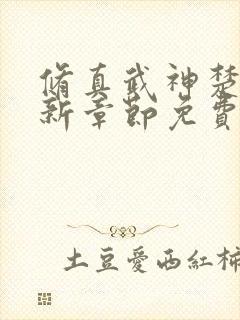 脩真武神楚
新章節免費
土豆愛西紅柿